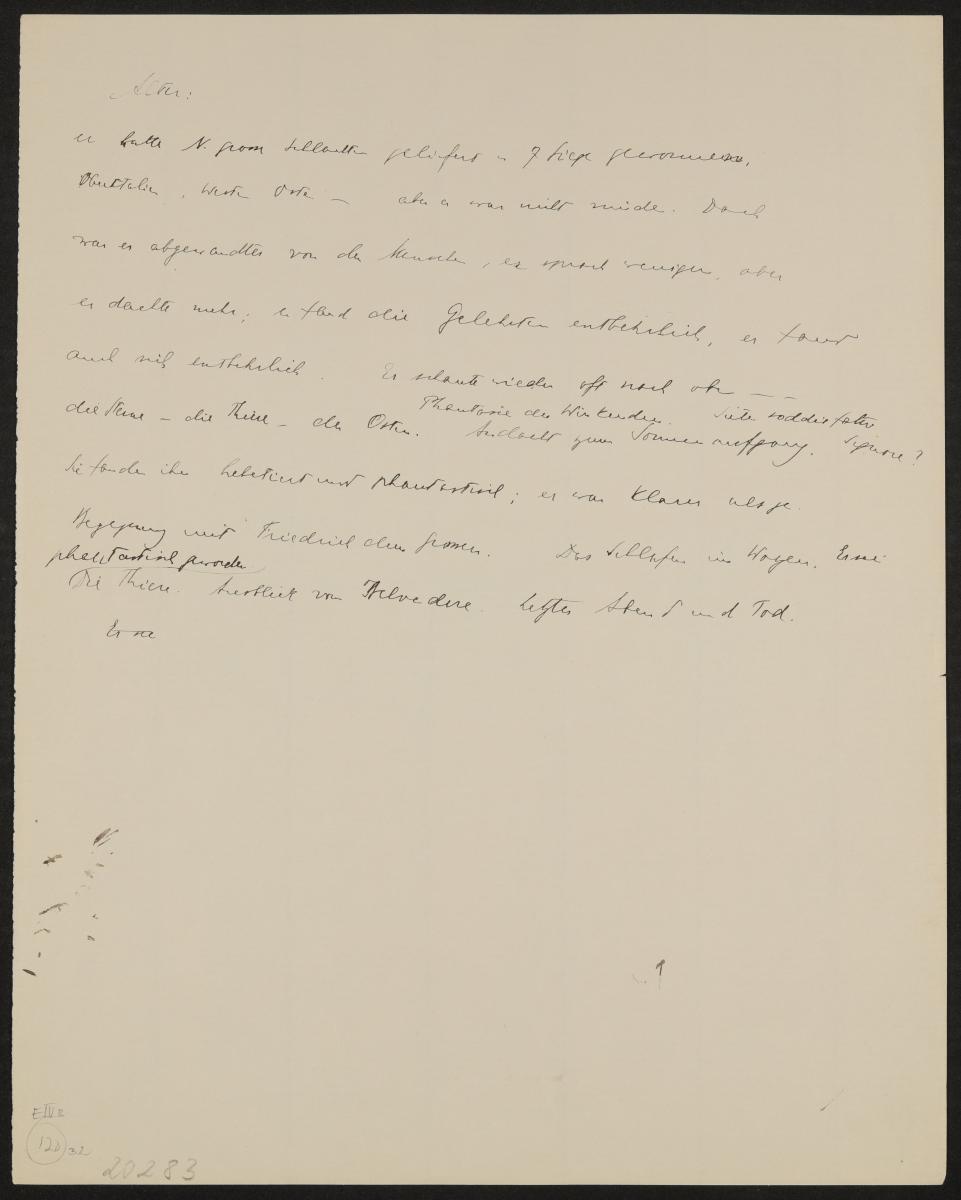 Alter:
er hatte N. grosse Schlachten geliefert u 7 Siege gewonnen,
Oberitalien, Westen Osten — aber er war nicht müde. Doch
war er abgewandter von den Menschen, er sprach weniger, aber
er dachte mehr; er fand die Gelehrten entbehrlich, er fand
auch sich entbehrlich. Er schaute wieder oft nach oben — —
Phantasie des Wirkenden. Siete soddisfatto
die Sterne — die Thiere — der Osten. Andacht zum Sonnenaufgang. Signore?
Sie fanden ihn hebetiert und phantastisch; er war klarer als je.
Begegnung mit Friedrich dem Grossen. Das Schlafen im Wagen. Er sei
phantastisch geworden
Die Thiere. Ausblick vom Belvedere. Letzter Abend und Tod.
Er sei
E IV
120 32
20283